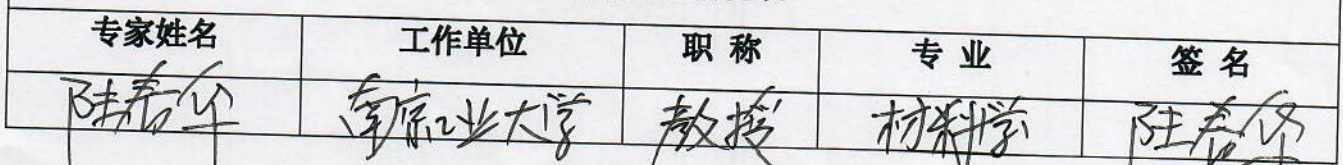 专家姓名 工作单位 职称 专业 签名
陆春华 南京工业大学 教授 材料学 陆春华